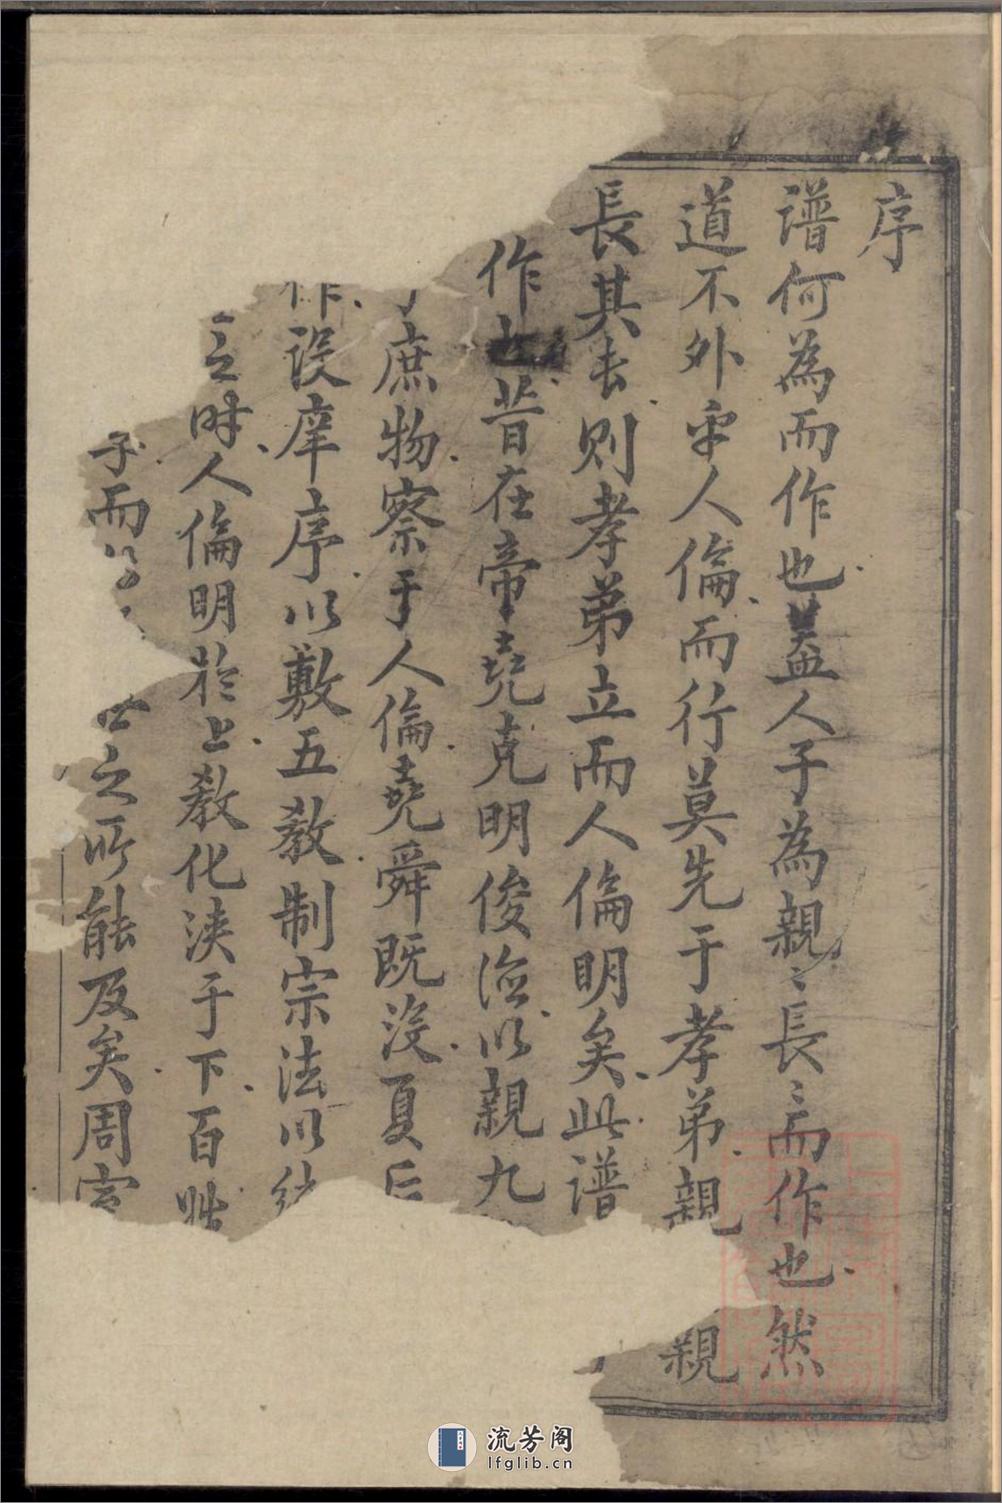 序
譜何為而作也蓋人子為親〻長〻而作也然
道不外乎人倫而行莫先于孝弟親親
長其長則孝弟立而人倫明矣此譜
作也昔在帝堯克明俊德以親九
庶物察于人倫堯舜既沒夏后
作設庠序以敷五教制宗法以
之時人倫明於上教化浹于下百姓
子而以
之所能及矣周室
流芳阁
lfglib.cn